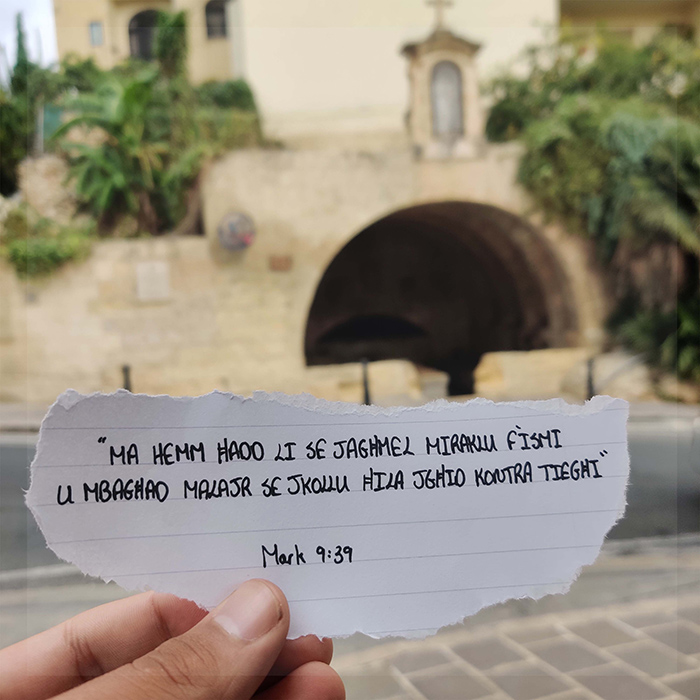 "MA HEMM ĦADD LI SE JAGĦMEL MIRAKLU F'ISMI
U MBAGĦAD MALAJR SE JKOLLU ĦILA JGĦID KONTRA TIEGĦI"
Mark 9:39